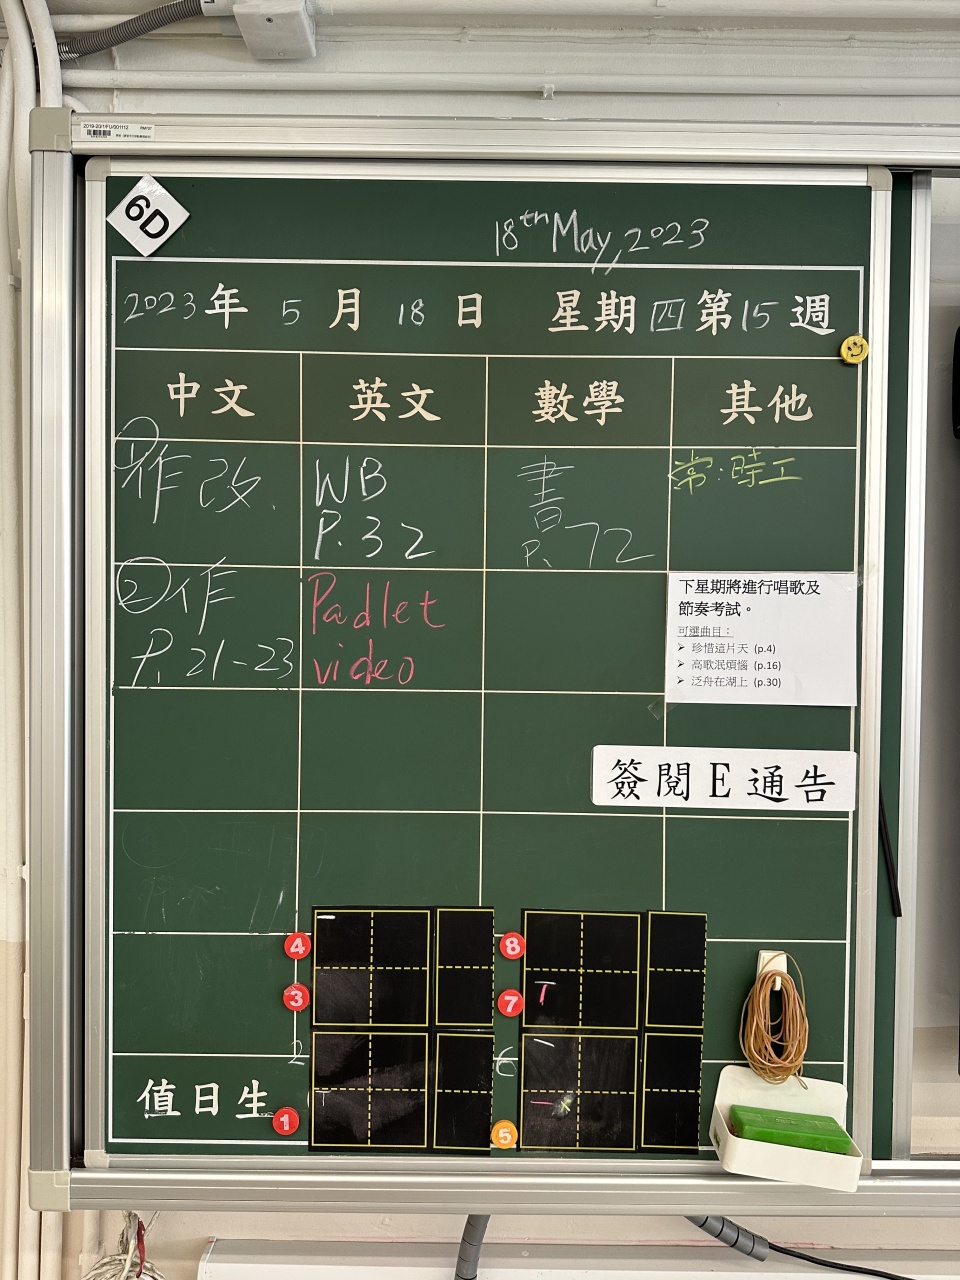 2019-20/1/FU/001112
RM707
6D
18th May, 2023
2023年 5月 18日 星期四 第15週
中文 英文 數學 其他
① 作改.
WB
P.32
書
P.72
常:時工
② 作
P.21-23
Padlet
video
下星期將進行唱歌及
節奏考試。
可選曲目：
➢ 珍惜這片天 (p.4)
➢ 高歌泯煩惱 (p.16)
➢ 泛舟在湖上 (p.30)
簽閱E通告
4
8
3
7
T
2
6
值日生
T
1
5